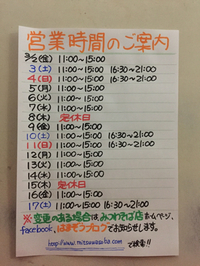 営業時間のご案内
3/2(金) 11:00〜15:00
3(土) 11:00〜15:00 16:30〜21:00
4(日) 11:00〜15:00 16:30〜21:00
5(月) 11:00〜15:00
6(火) 11:00〜15:00
7(水) 11:00〜15:00
8(木) 定休日
9(金) 11:00〜15:00
10(土) 11:00〜15:00 16:30〜21:00
11(日) 11:00〜15:00 16:30〜21:00
12(月) 11:00〜15:00
13(火) 11:00〜15:00
14(水) 11:00〜15:00
15(木) 定休日
16(金) 11:00〜15:00
17(土) 11:00〜15:00 16:30〜21:00
※変更のある場合は、みつわそば店ホームページ、
facebook、はまぞうブログでお知らせします。
で検索!!